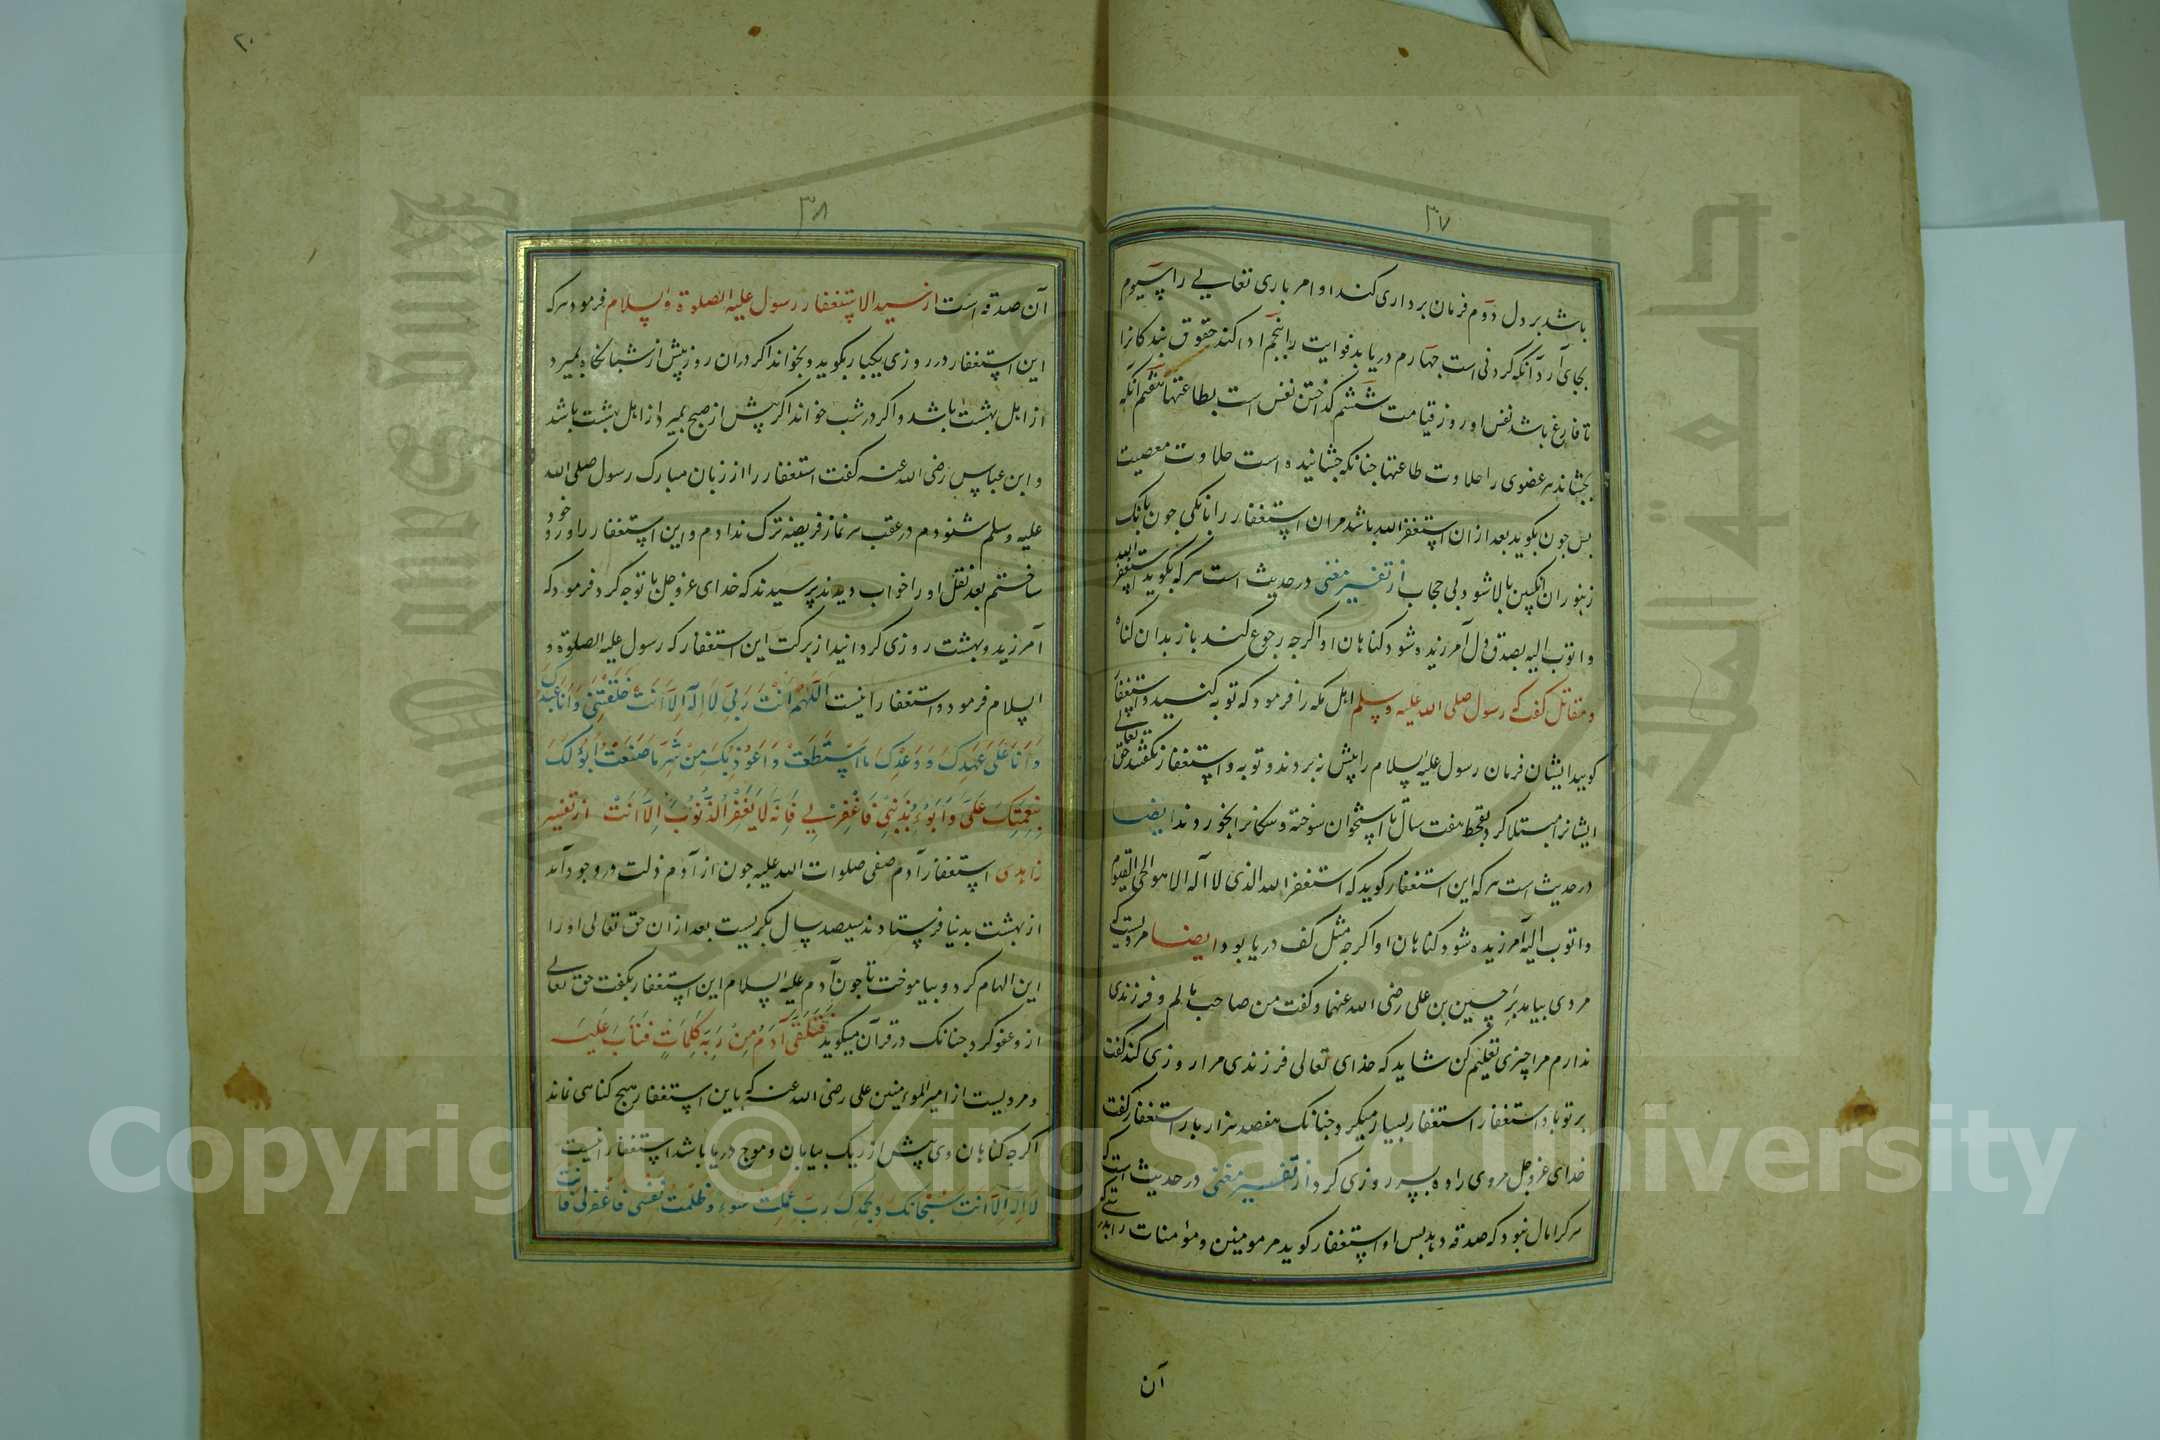 ۳۷
باشد بر دل دوم فرمان برداری کند اوامر باری تعالی را سیوم
بجای آرد آنکه کردنی است چهارم دریابد فوایت را پنجم ادا کند حقوق بندکانرا
تا فارغ باشد نفس او روز قیامت ششم کداختن نفس است بطاعتها هفتم آنکه
بچشاند هر عضوی را حلاوت طاعتها جنانکه جشانیده است حلاوت معصیت
بس جون بکوید بعد ازان استغفر الله باشد مران استغفار را بانکی جون بانک
زنبوران انکبین بالا شود بی حجاب از تفسیر مغنی در حدیث است هر که بکوید استغفر الله
و اتوب الیه بصدق دل آمرزیده شود کناهان او اکرجه رجوع کند باز بدان کناه
و مقاتل کفت که رسول صلی الله علیه وسلم اهل مکه را فرمود که توبه کنید و استغفار
کویید ایشان فرمان رسول علیه السلام را پیش نه بردند و توبه و استغفار نکفتند حق تعالی
ایشانرا مبتلا کرد بقحط هفت سال تا استخوان سوخته و سکانرا بخوردند ایضا
در حدیث است هر که این استغفار کوید که استغفر الله الذی لا اله الا هو الحی القیوم
و اتوب الیه آمرزیده شود کناهان او اکرجه مثل کف دریا بود ایضا مرویست که
مردی بیامد بر حسین بن علی رضی الله عنهما و کفت من صاحب مالم و فرزندی
ندارم مرا چیزی تعلیم کن شاید که خدای تعالی فرزندی مرا روزی کند کفت
بر تو باد استغفار استغفار بسیار میکرد جنانک هفصد هزار بار استغفار کفت
خدای عز وجل مروی را ده پسر روزی کرد از تفسیر مغنی در حدیث است که
هر کرا مال نبود که صدقه دهد بس او استغفار کوید مر مومنین و مؤمنات را
آن
۲۰
۳۸
آن صدقه است از سید الاستغفار رسول علیه الصلوة والسلام فرمود هر که
این استغفار در روزی یکبار بکوید و بخواند اکر دران روز پیش از شبانکاه بمیرد
از اهل بهشت باشد و اکر در شب خواند اکر پیش از صبح بمیرد از اهل بهشت باشد
و ابن عباس رضی الله عنه کفت استغفار را از زبان مبارک رسول صلی الله
علیه وسلم شنودم در عقب هر نماز فریضه ترک ندادم و این استغفار را ورد خود
ساختم بعد نقل او را خواب دیدند پرسیدند که خدای عز وجل با تو چه کرد فرمود که
آمرزید و بهشت روزی کردانید از برکت این استغفار که رسول علیه الصلوة و
السلام فرمود و استغفار اینست اللهم انت ربی لا اله الا انت خلقتنی و انا عبدک
و انا علی عهدک و وعدک ما استطعت و اعوذ بک من شر ما صنعت ابوء لک
بنعمتک علی و ابوء بذنبی فاغفر لی فانه لا یغفر الذنوب الا انت از تفسیر
زاهدی استغفار آدم صفی صلوات الله علیه جون از آدم ذلت در وجود آمد
از بهشت بدنیا فرستادند سیصد سال بکریست بعد ازان حق تعالی او را
این الهام کرد و بیاموخت تا جون آدم علیه السلام این استغفار بکفت حق تعالی
ازو عفو کرد جنانک در قرآن میکوید فتلقی آدم من ربه کلمات فتاب علیه
و مرویست از امیر المومنین علی رضی الله عنه که باین استغفار هیج کناهی نماند
اکرجه کناهان وی بیش از ریک بیابان و موج دریا باشد استغفار اینست
لا اله الا انت سبحانک و بحمدک رب عملت سوء و ظلمت نفسی فاغفر لی فانت
جامعة الملك سعود
King Saud University
Copyright © King Saud University